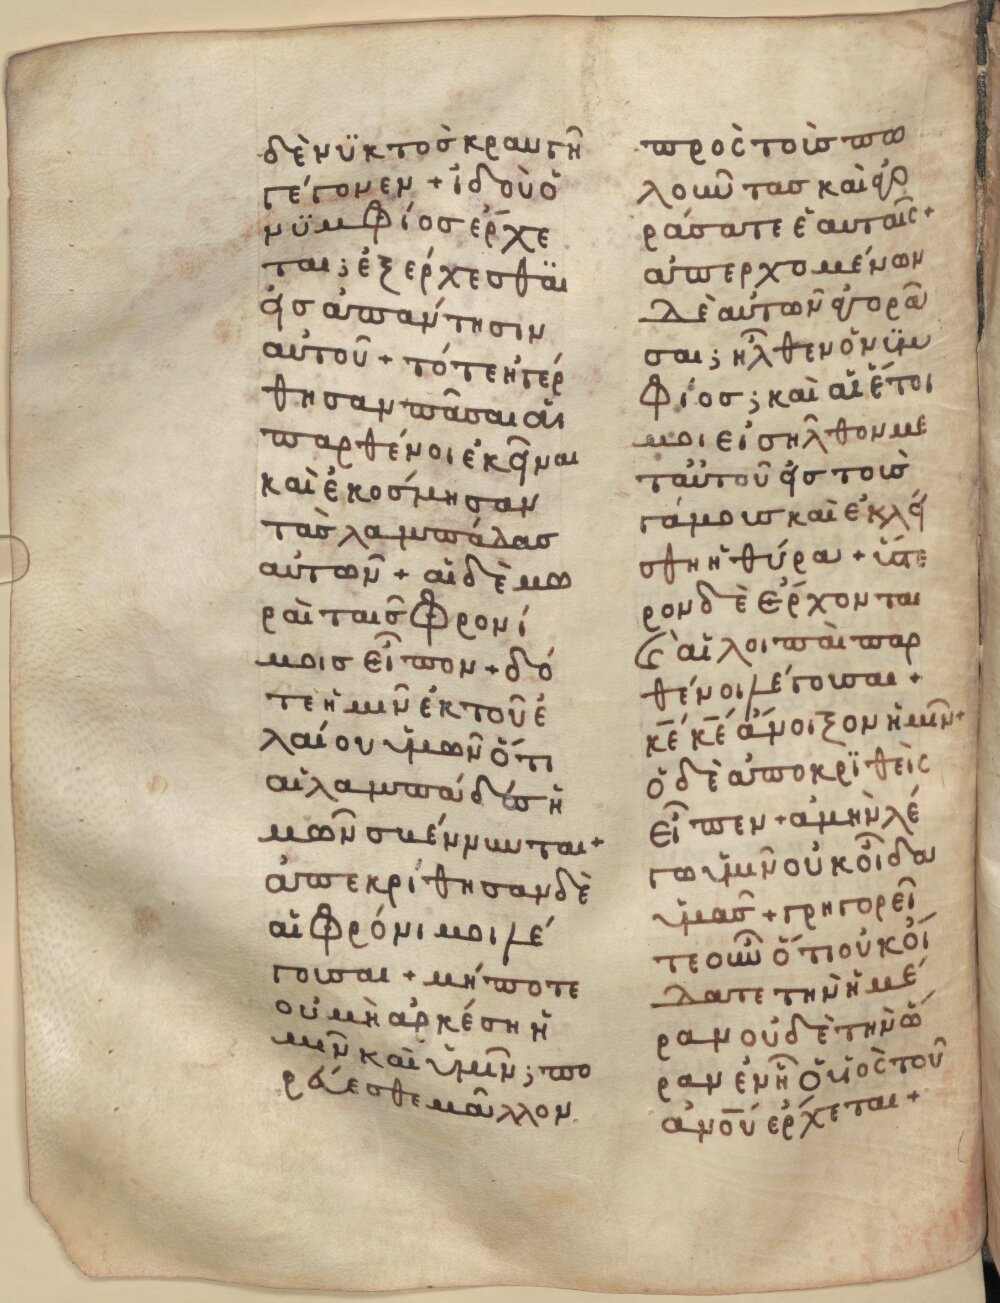 δὲ νϋκτοσ κραυγὴ
γέγονεν + ἰδοὺ ὁ
νϋμφίοσ ἐρχε
ται; ἐξέρχεσθαι
εἰσ ἀπάντησιν
αὐτοῦ + τότε ἠγέρ
θησαν πᾶσαι αἱ
παρθένοι ἐκεῖναι
καὶ ἐκοσμησαν
τὰσ λαμπάδασ
αὐτῶν + αἱ δὲ μω
ραὶ ταισ φρονί
μοισ εἶπον + δό
τε ἡμῖν ἐκ τοῦ ἐ
λαίου ὑμῶν ὅτι
αἱ λαμπάδεσ ἡ
μῶν σβέννυνται +
ἀπεκρίθησαν δὲ
αἱ φρόνιμοι λέ
γουσαι + μήποτε
οὐ μὴ ἀρκέση ἡ
μῖν καὶ ὑμῖν; πο
ρεύεσθε μᾶλλον
πρὸς τοὺσ πω
λοῦντασ καὶ ἀγο
ράσατε ἑαυταῖς +
ἀπερχομένων
δὲ αὐτῶν ἀγορᾶ
σαι; ἦλθεν ὁ νϋμ
φίοσ; καὶ αἱ ἕτοι
μοι εἰσῆλθον με
τ αὐτοῦ εἰσ τοὺσ
γάμουσ καὶ ἐκλεί
σθη ἡ θύρα + ὕστε
ρον δὲ ἐρχονται
καὶ αἱ λοιπαὶ παρ
θένοι λέγουσαι +
κ̅ε κ̅ε ἄνοιξον ἡμῖν +
ὁ δὲ ἀποκρϊθεὶς
εἶπεν + ἀμὴν λέ
γω ὑμῖν οὐκ οἶδα
ὑμᾶσ + γρηγορεῖ
τε οὖν ὅτι οὐκ οἴ
δατε τὴν ἡμέ
ραν οὐδὲ τὴν ὥ
ραν ἐν ἧ ὁ υἱὸς τοῦ
ἀν̅ο̅υ ἐρχεται +